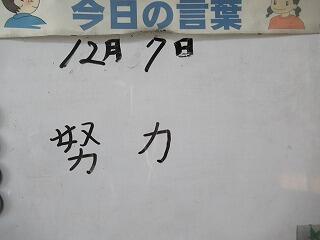 今日の言葉
12月7日
努力